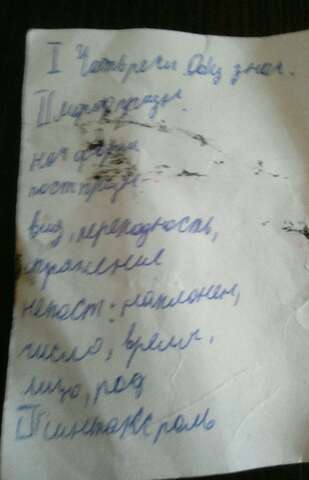 I Часть речи. Общ знач.
II морф призн.
нач форма
пост призн.
вид, переходность,
спряжение
непост: наклонен,
число, время,
лицо, род
III синтакс роль